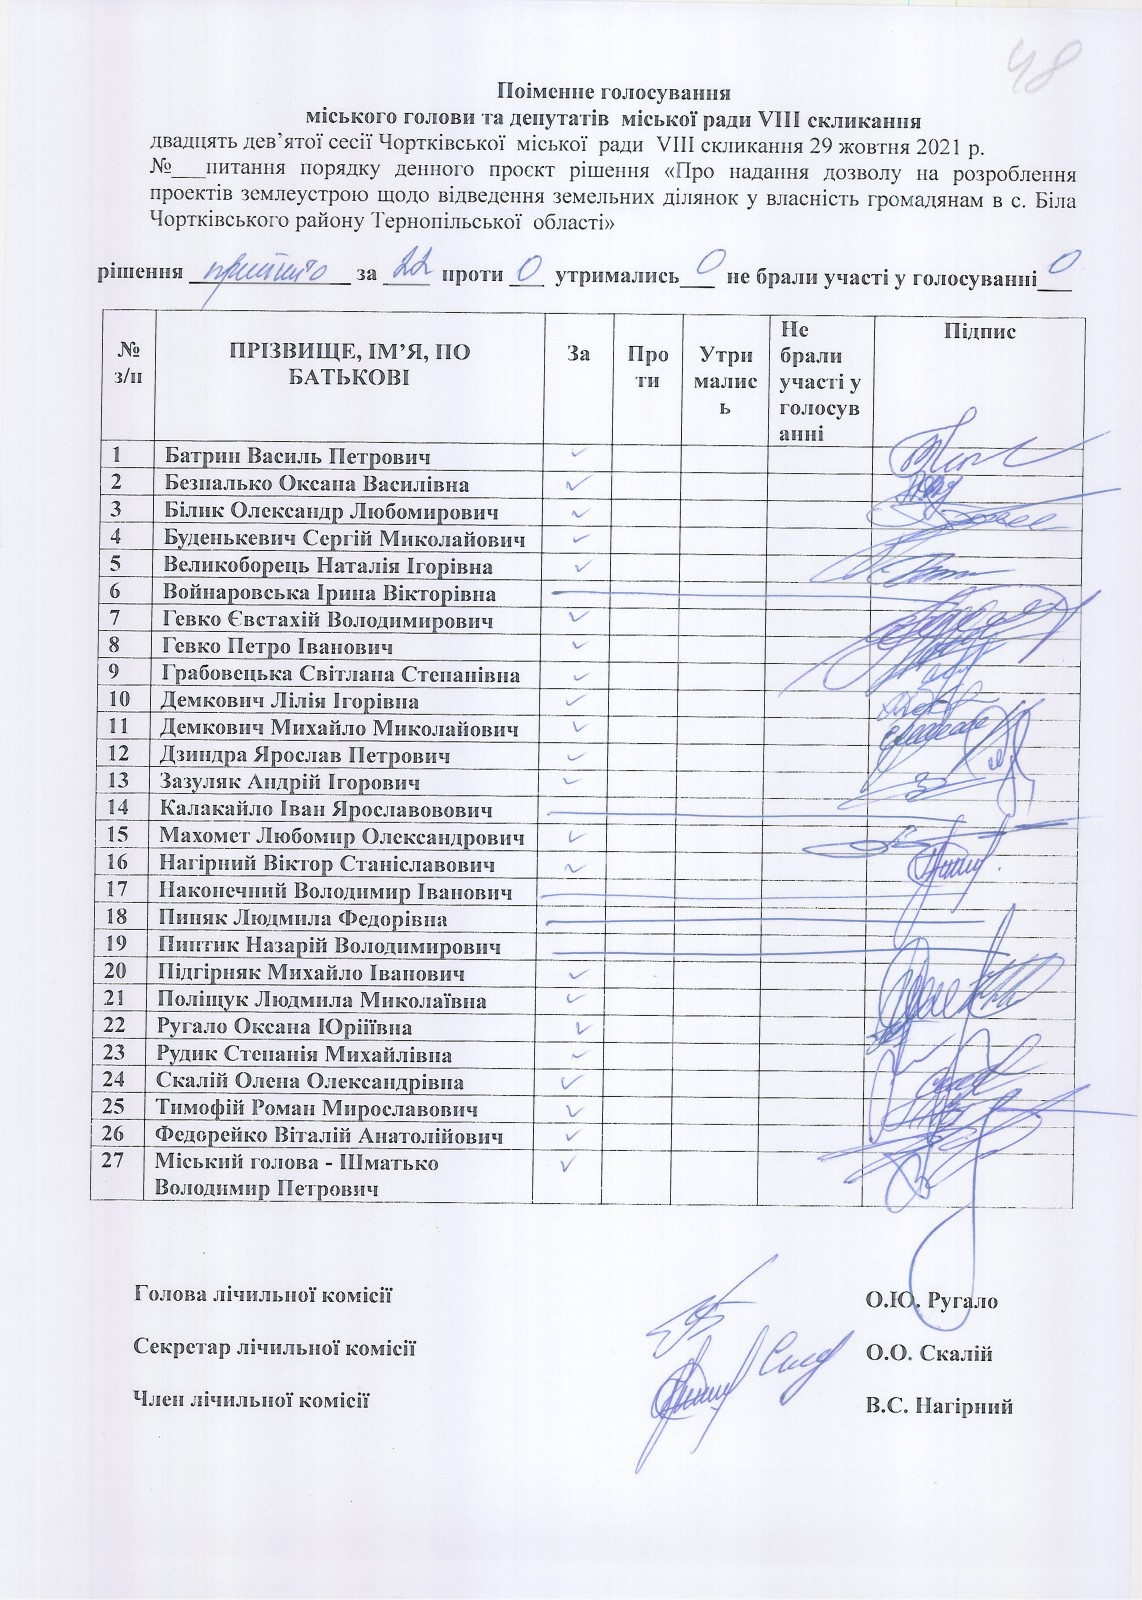 48
Поіменне голосування
міського голови та депутатів міської ради VIII скликання
двадцять дев’ятої сесії Чортківської міської ради VIII скликання 29 жовтня 2021 р.
№___питання порядку денного проєкт рішення «Про надання дозволу на розроблення
проектів землеустрою щодо відведення земельних ділянок у власність громадянам в с. Біла
Чортківського району Тернопільської області»
рішення прийнято за 22 проти 0 утримались 0 не брали участі у голосуванні 0
№ з/п ПРІЗВИЩЕ, ІМ’Я, ПО БАТЬКОВІ За Проти Утрималис ь Не брали участі у голосув анні Підпис
1 Батрин Василь Петрович ✓
2 Безпалько Оксана Василівна ✓
3 Білик Олександр Любомирович ✓
4 Буденькевич Сергій Миколайович ✓
5 Великоборець Наталія Ігорівна ✓
6 Войнаровська Ірина Вікторівна
7 Гевко Євстахій Володимирович ✓
8 Гевко Петро Іванович ✓
9 Грабовецька Світлана Степанівна ✓
10 Демкович Лілія Ігорівна ✓
11 Демкович Михайло Миколайович ✓
12 Дзиндра Ярослав Петрович ✓
13 Зазуляк Андрій Ігорович ✓
14 Калакайло Іван Ярославовович
15 Махомет Любомир Олександрович ✓
16 Нагірний Віктор Станіславович ✓
17 Наконечний Володимир Іванович
18 Пиняк Людмила Федорівна
19 Пиптик Назарій Володимирович
20 Підгірняк Михайло Іванович ✓
21 Поліщук Людмила Миколаївна ✓
22 Ругало Оксана Юріїївна ✓
23 Рудик Степанія Михайлівна ✓
24 Скалій Олена Олександрівна ✓
25 Тимофій Роман Мирославович ✓
26 Федорейко Віталій Анатолійович ✓
27 Міський голова - Шматько ✓
Володимир Петрович
Голова лічильної комісії О.Ю. Ругало
Секретар лічильної комісії О.О. Скалій
Член лічильної комісії В.С. Нагірний